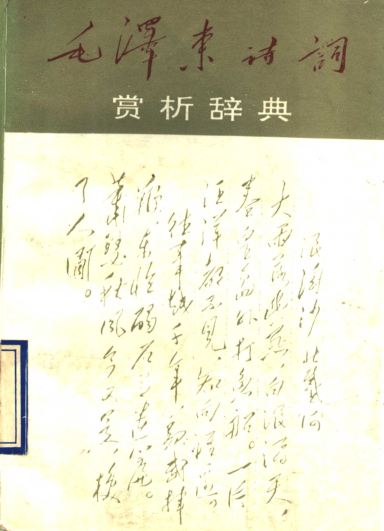 毛澤東诗詞
赏析辞典
浪淘沙 北戴河
大雨落幽燕,白浪滔天,
秦皇岛外打鱼船。一片
汪洋都不见,知向谁边?
往事越千年,魏武挥
鞭,东临碣石有遗篇。
萧瑟秋风今又是,换
了人间。